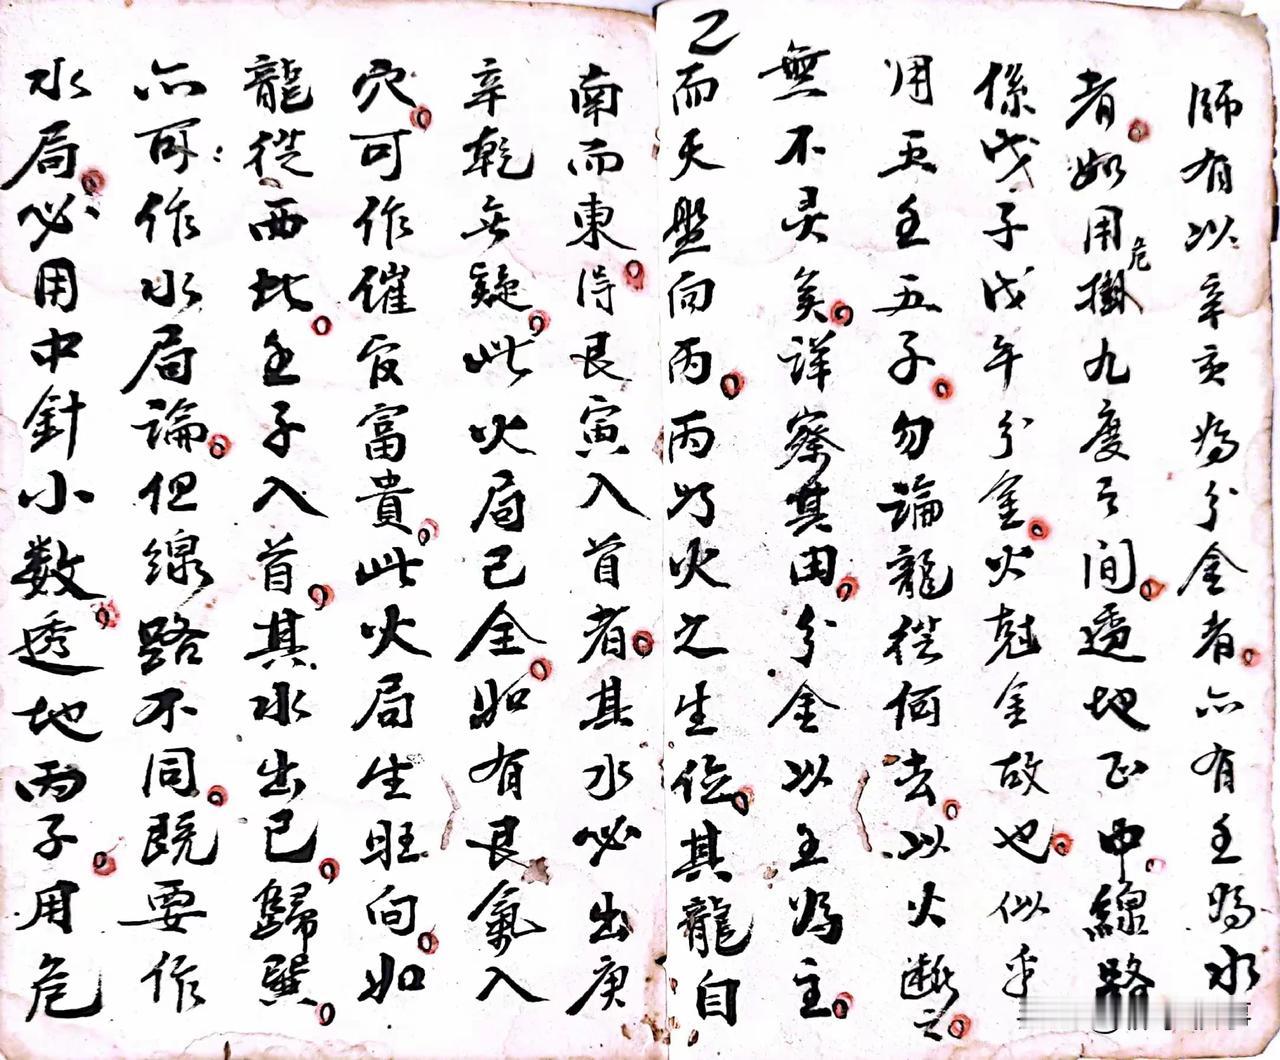 師有以辛亥為分金者。亦有壬為水
者。如用掛危九度之間。透地正中。線路
係戊子戊午分金。火尅金故也。似乎
用壬五子。勿論龍從何去。以火斷之。
無不灵矣。詳察其田。分金以主為主。
乙而天盤向丙。丙乃火之生位。其龍自
南而東。得艮寅入首者。其水必出庚
辛乾無疑。此火局已全。如有艮氣入
穴。可作催官富貴。此火局生旺向。如
龍從西北。壬子入首。其水出巳。歸巽。
亦可作水局論。但線路不同。既要作
水局。必用中針小数。透地丙子。用危